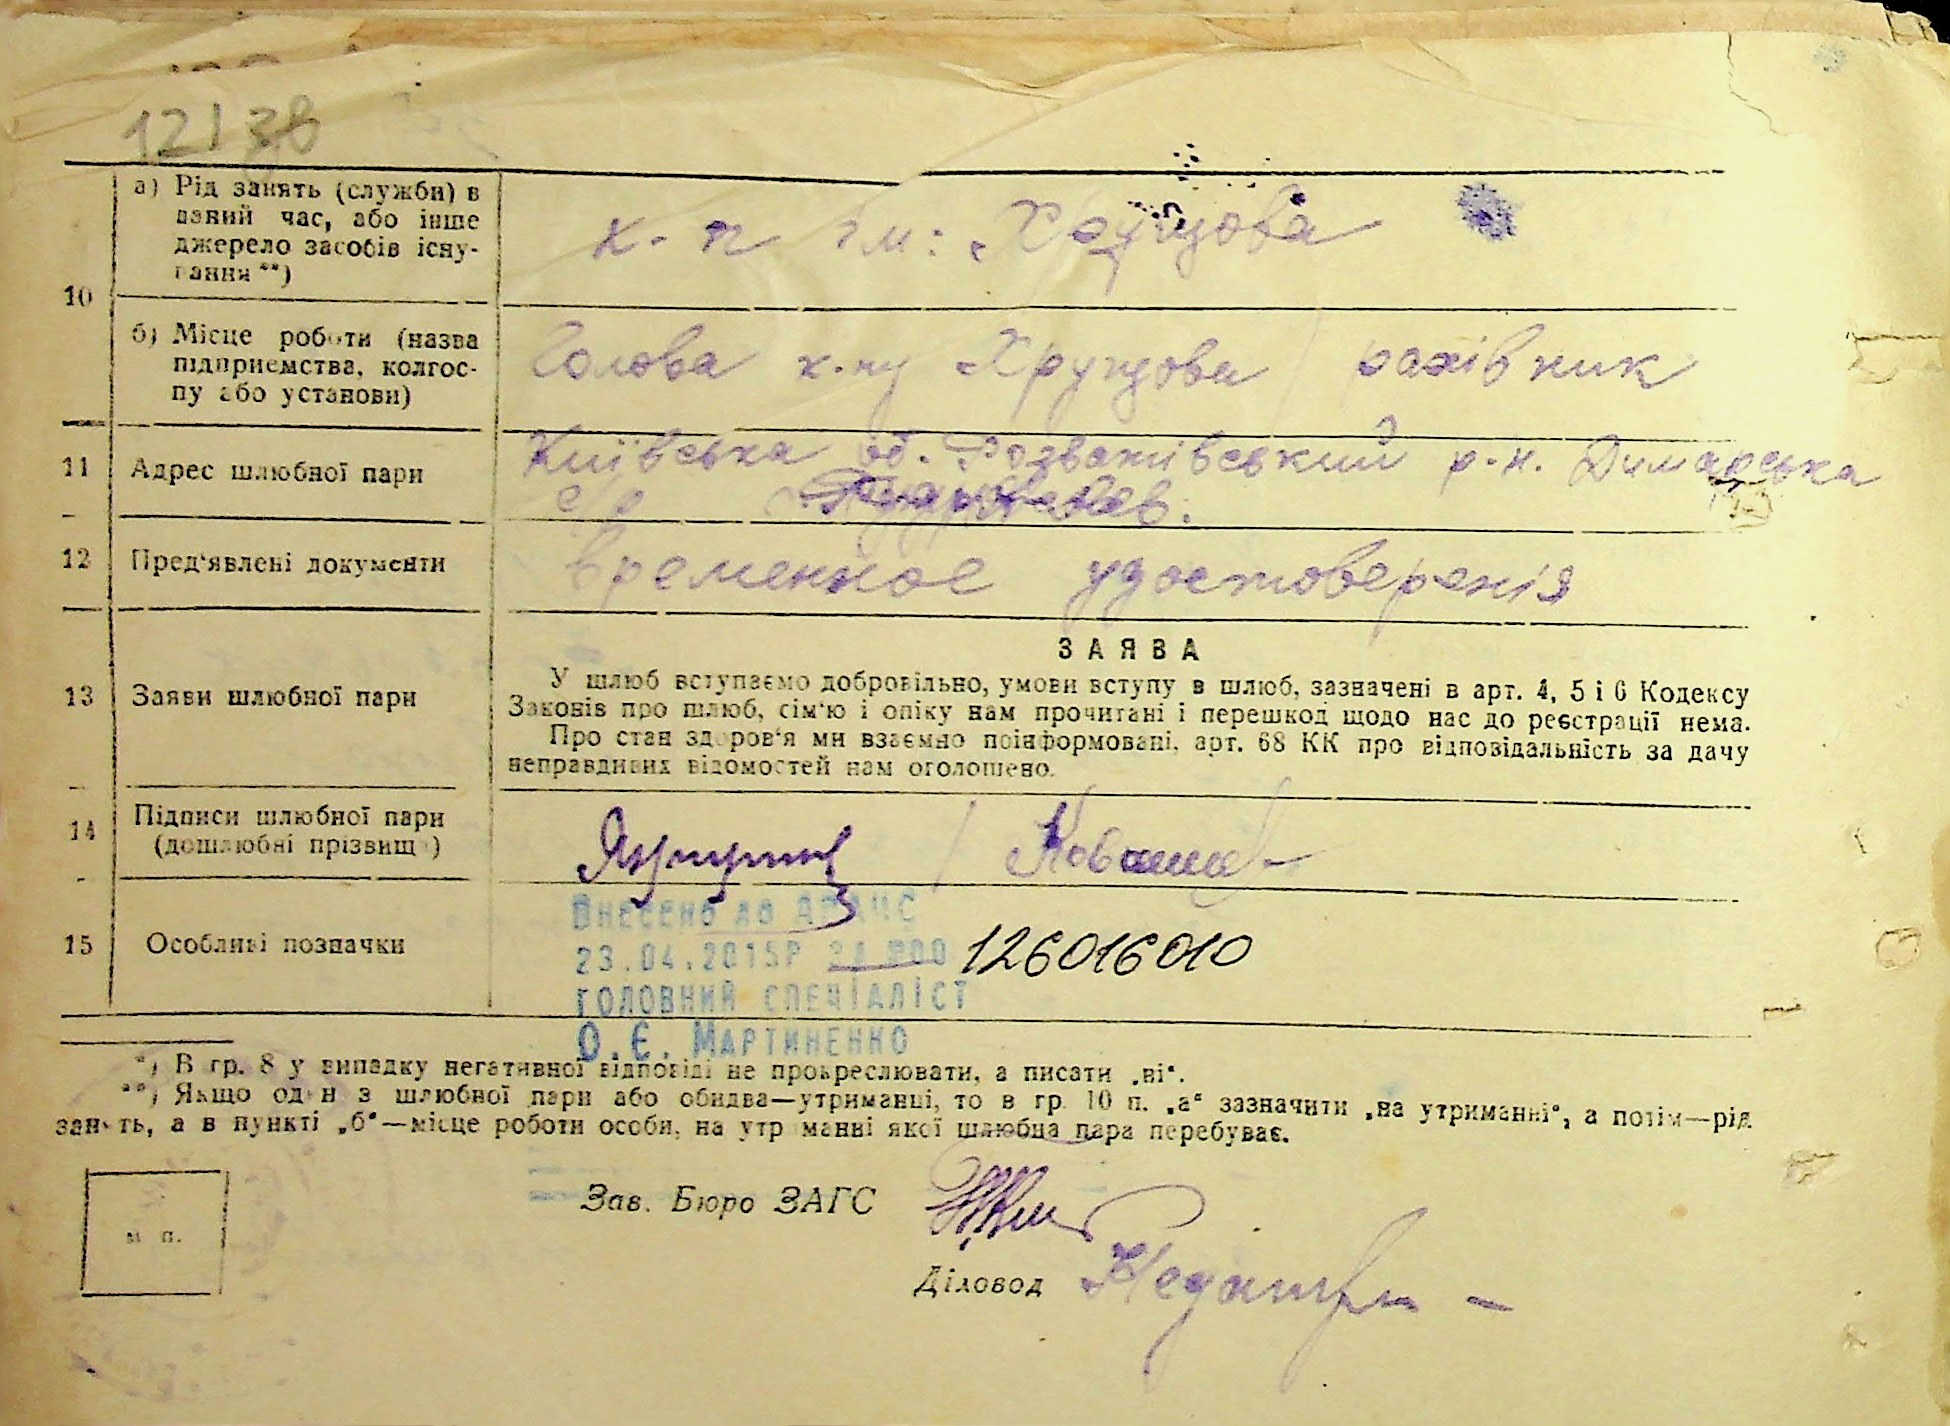 12138
10
а) Рід занять (служби) в
даний час, або інше
джерело засобів існу-
вання **)
к-п ім: Хрущова
б) Місце роботи (назва
підприємства, колгос-
пу або установи)
Голова к-пу Хрущова / рахівник
11 Адрес шлюбної пари
Київська об. Розважівський р-н. Димарська
с/р
12 Пред'явлені документи
временное удостоверенія
13 Заяви шлюбної пари
ЗАЯВА
У шлюб вступаємо добровільно, умови вступу в шлюб, зазначені в арт. 4, 5 і 6 Кодексу
Законів про шлюб, сім'ю і опіку нам прочитані і перешкод щодо нас до реєстрації нема.
Про стан здоров'я ми взаємно поінформовані, арт. 68 КК про відповідальність за дачу
неправдивих відомостей нам оголошено.
14 Підписи шлюбної пари
(дошлюбні прізвища)
15 Особливі позначки
Внесено до АРАЦС
23.04.2015р за №00 126016010
головний спеціаліст
О.Є. Мартиненко
*) В гр. 8 у випадку негативної відповіді не прокреслювати, а писати „ні“.
**) Якщо один з шлюбної пари або обидва—утриманці, то в гр. 10 п. „а“ зазначити „на утриманні“, а потім—рід
занять, а в пункті „б“—місце роботи особи, на утриманні якої шлюбна пара перебуває.
м п.
Зав. Бюро ЗАГС
Діловод